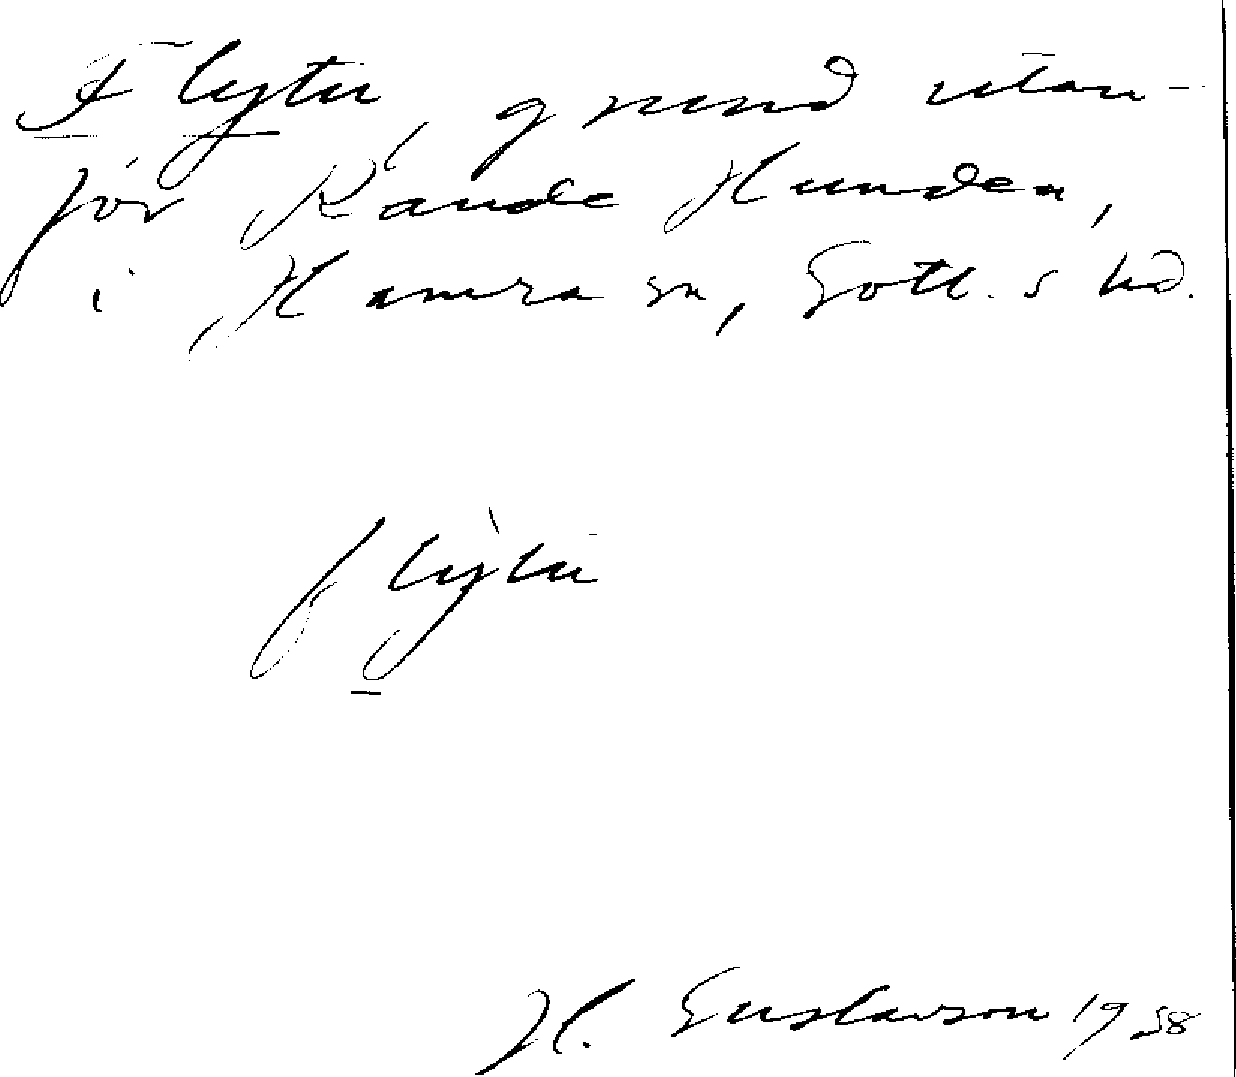 Flytu, grund utan-
för Rande Hunden,
i Hamra sn, Gotl. s hd.
flỳtu
H. Gustavson 1938